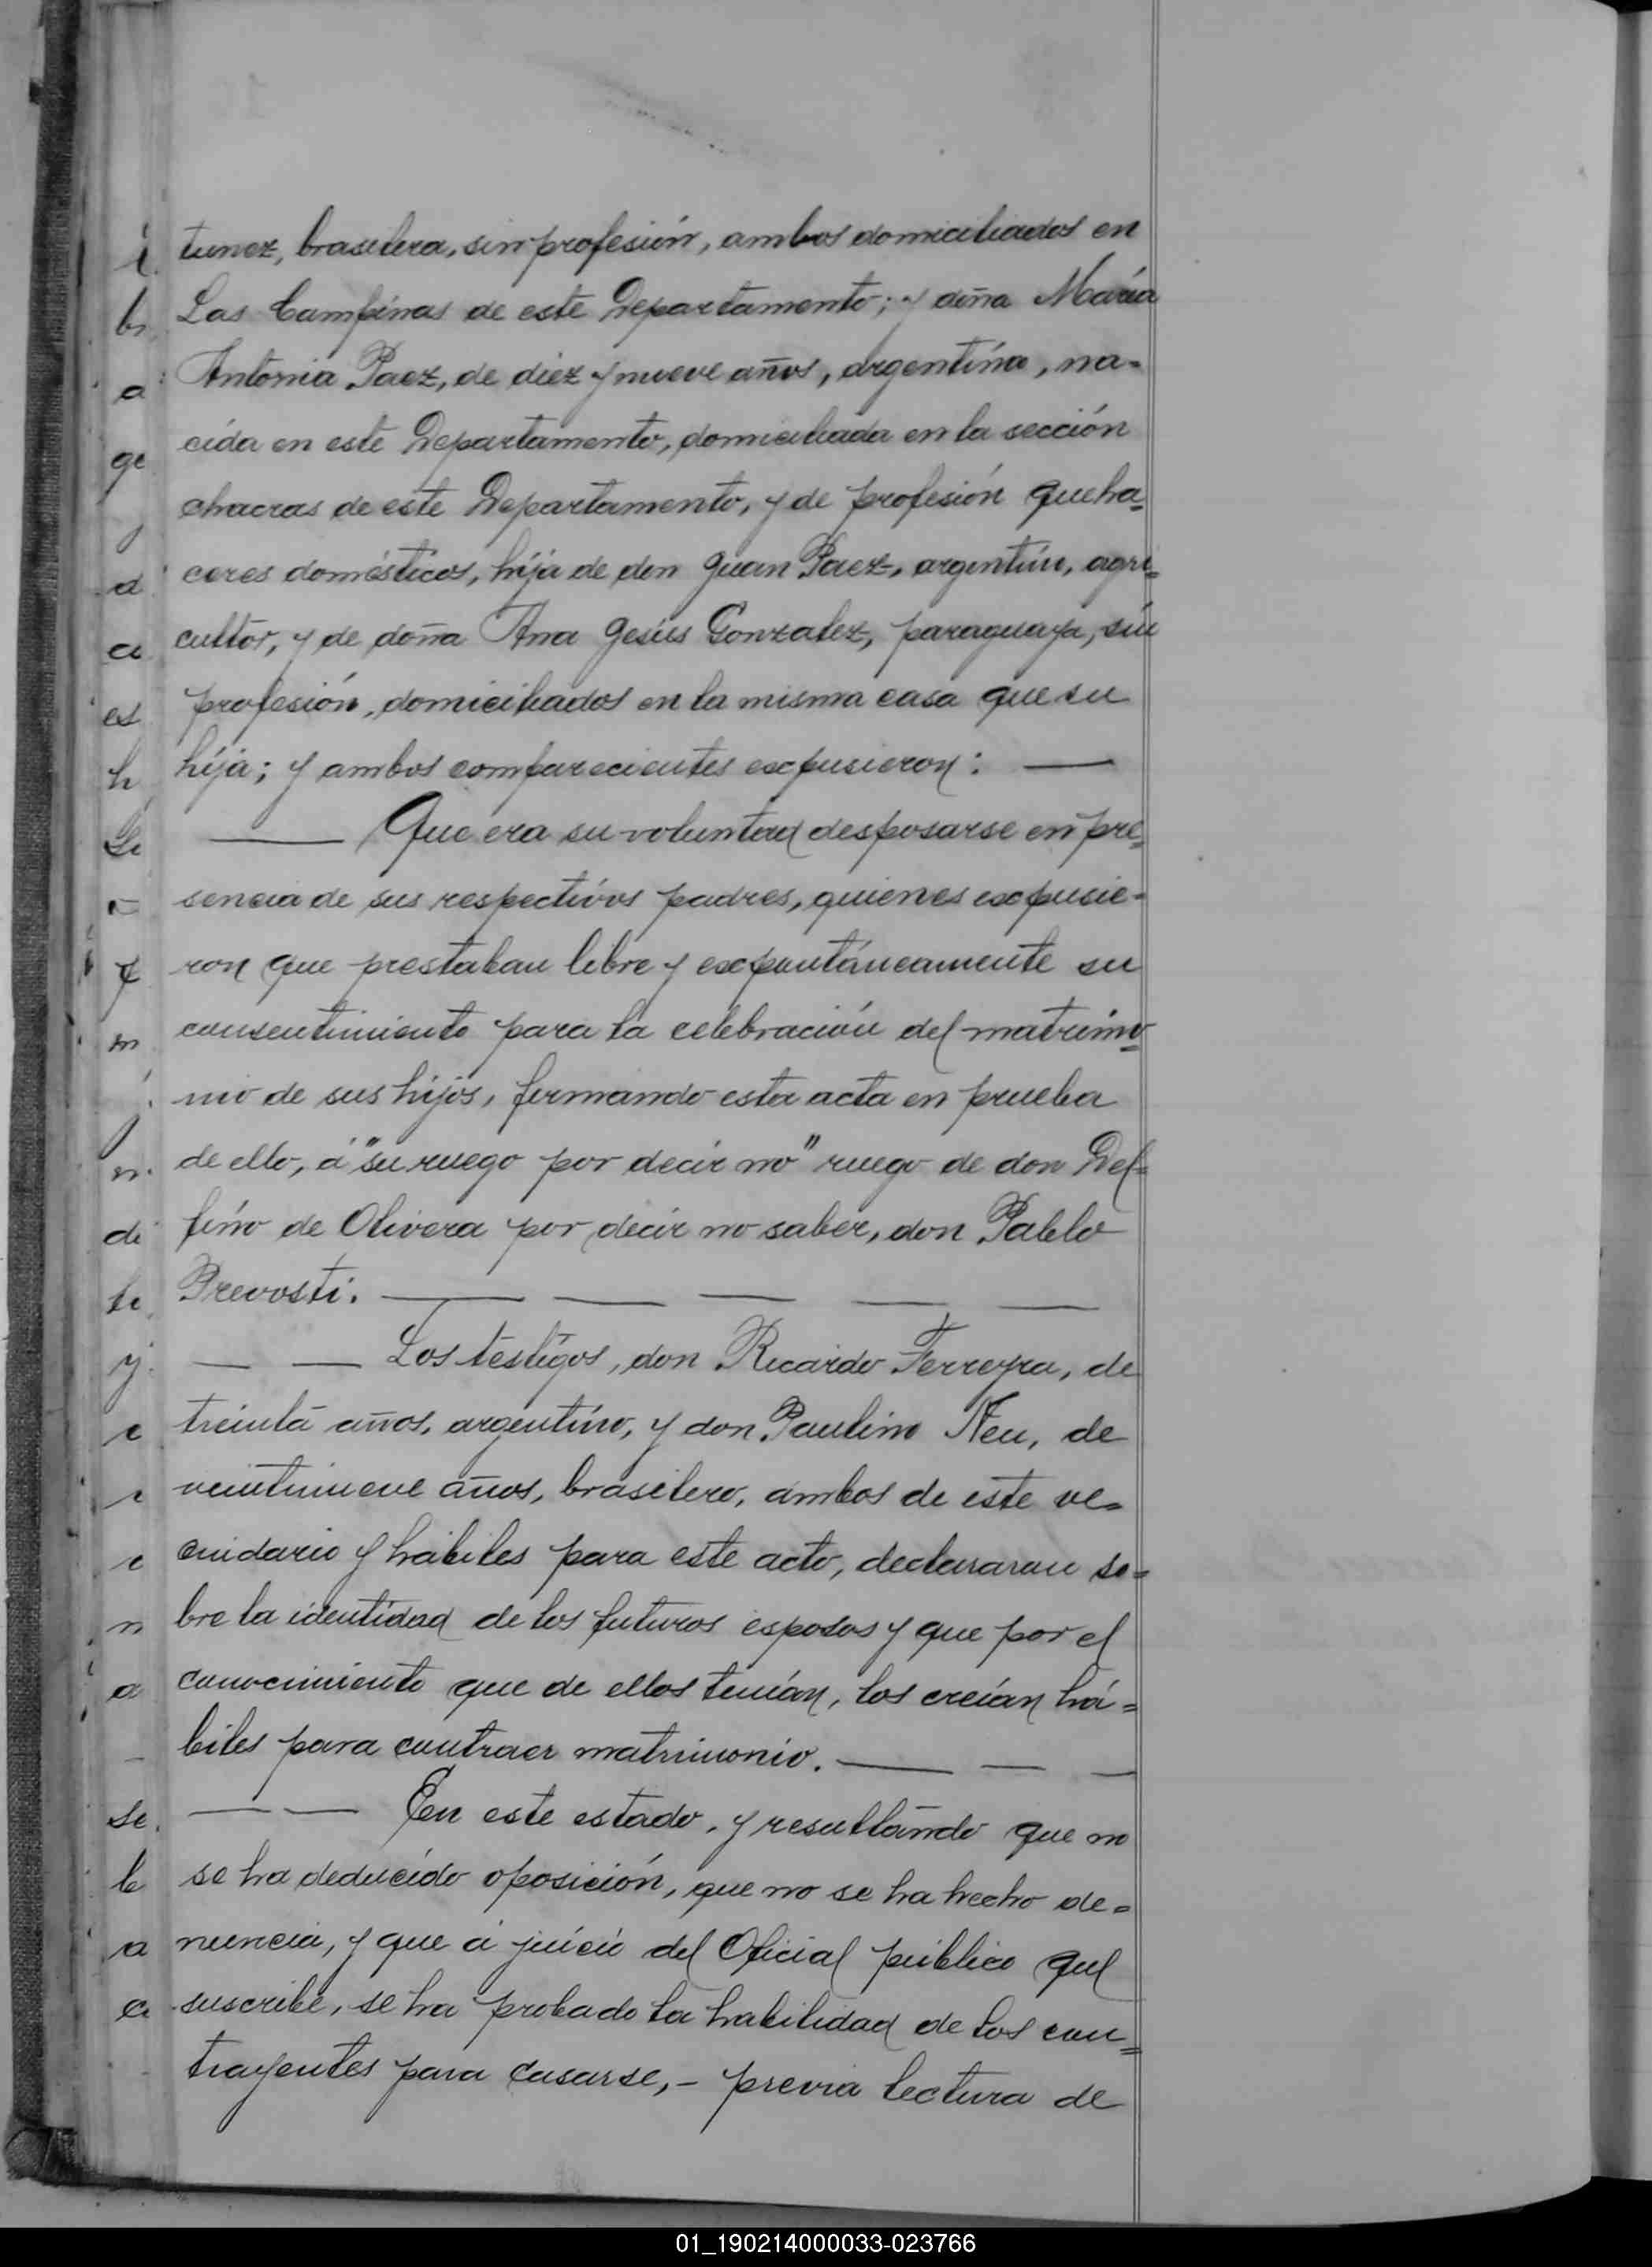 tunez, brasilera, sin profesión, ambos domiciliados en
Las Campinas de este Departamento; y doña María
Antonia Paez, de diez y nueve años, argentina, na-
cida en este Departamento, domiciliada en la sección
chacras de este Departamento, y de profesión queha=
ceres domésticos, hija de don Juan Paez, argentino, agri=
cultor, y de doña Ana Jesús Gonzalez, paraguaya, sin
profesión, domiciliados en la misma casa que su
hija; y ambos comparecientes expusieron: —
— Que era su voluntad desposarse en pre=
sencia de sus respectivos padres, quienes expusie=
ron que prestaban libre y expontáneamente su
consentimiento para la celebración del matrimo=
nio de sus hijos, firmando esta acta en prueba
de ello, á "su ruego por decir no" ruego de don Del=
fino de Olivera por decir no saber, don Pablo
Prevosti. — — — — —
— — Los testigos, don Ricardo Ferreyra, de
treinta años, argentino, y don Paulino Neu, de
veintinueve años, brasilero, ambos de este ve=
cindario y hábiles para este acto, declararan so=
bre la identidad de los futuros esposos y que por el
conocimiento que de ellos tenían, los creían há=
biles para contraer matrimonio. — — —
— — En este estado, y resultando que no
se ha deducido oposición, que no se ha hecho de=
nuncia, y que á juicio del Oficial público qul
suscribe, se ha probado la habilidad de los con=
trayentes para casarse, - previa lectura de
01_190214000033-023766